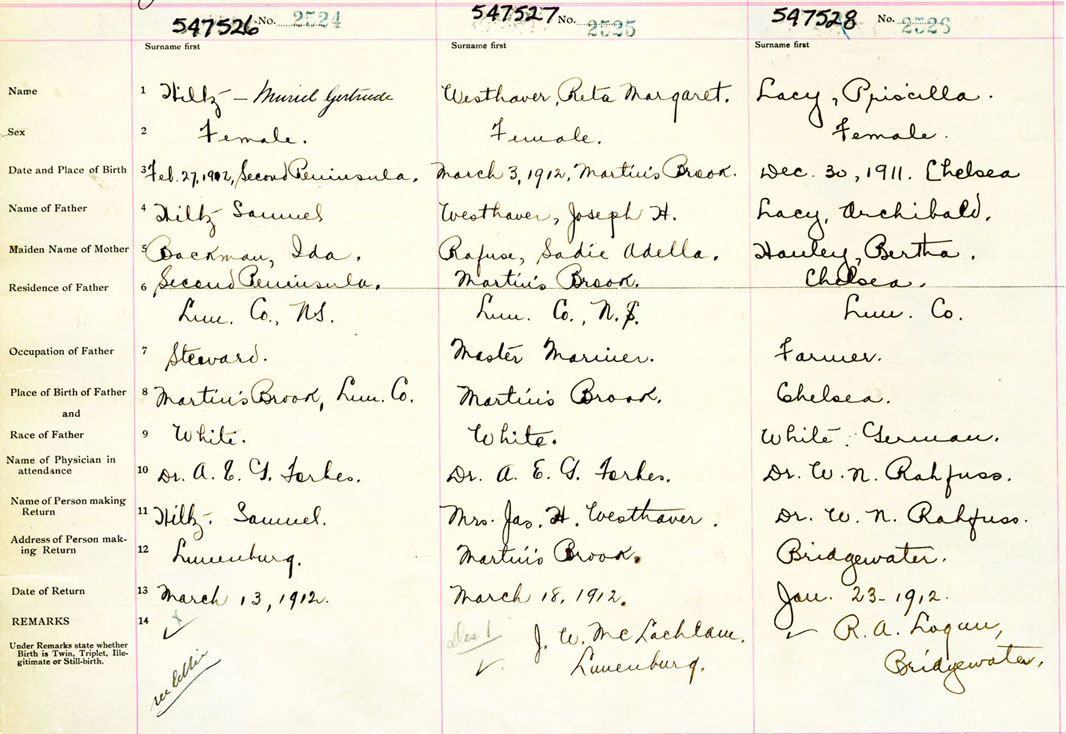 547526 No. 2524 547527 No. 2525 547528 No. 2526
Surname first Surname first Surname first
Name 1 Hiltz - Muriel Gertrude Westhaver, Reta Margaret. Lacy, Priscilla.
Sex 2 Female. Female. Female.
Date and Place of Birth 3 Feb. 27, 1912, Second Peninsula. March 3, 1912, Martin's Brook. Dec. 30, 1911. Chelsea
Name of Father 4 Hiltz Samuel Westhaver, Joseph H. Lacy, Archibald.
Maiden Name of Mother 5 Backman, Ida. Rafuse, Sadie Adella. Hanley, Bertha.
Residence of Father 6 Second Peninsula. Martin's Brook. Chelsea.
Lun. Co., N.S. Lun. Co., N.S. Lun. Co.
Occupation of Father 7 Steward. Master Mariner. Farmer.
Place of Birth of Father 8 Martin's Brook, Lun. Co. Martin's Brook. Chelsea.
and
Race of Father 9 White. White. White German.
Name of Physician in
attendance 10 Dr. A. E. G. Forbes. Dr. A. E. G. Forbes. Dr. W. N. Rahfuss.
Name of Person making
Return 11 Hiltz. Samuel. Mrs. Jas. H. Westhaver. Dr. W. N. Rahfuss.
Address of Person mak-
ing Return 12 Lunenburg. Martin's Brook. Bridgewater.
Date of Return 13 March 13, 1912. March 18, 1912. Jan. 23-1912.
REMARKS 14 J. W. McLachlan, R. A. Logan,
Under Remarks state whether
Birth is Twin, Triplet, Ille-
gitimate or Still-birth.
Lunenburg. Bridgewater.